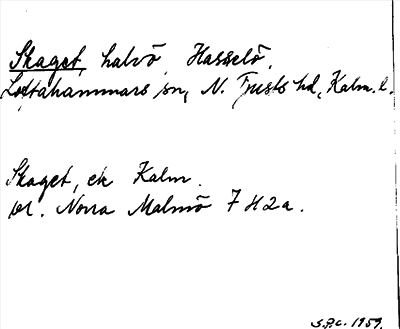 Skaget, halvö, Hasselö,
Loftahammars sn, N. Tjusts hd, Kalm. l.
Skaget, ek Kalm.
bl. Norra Malmö 7 H 2 a.
S.P.C. 1959.